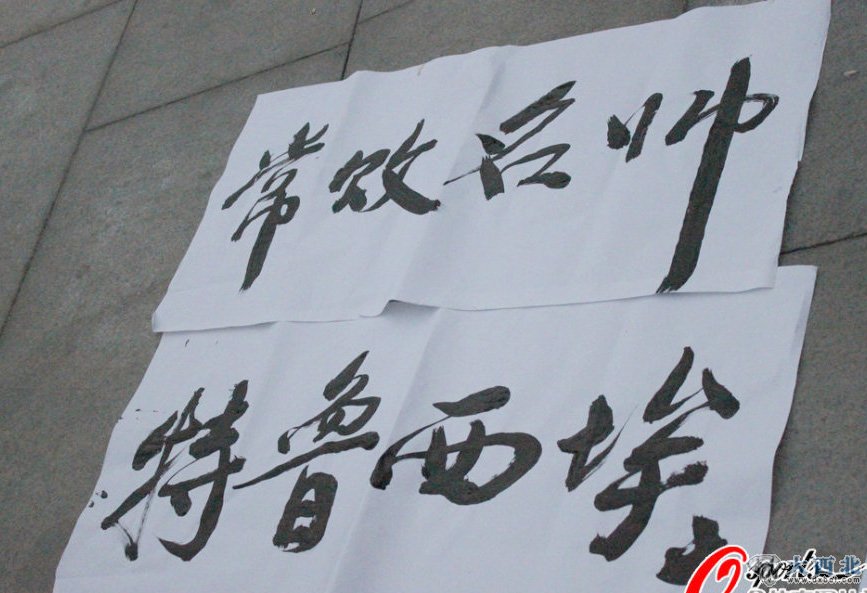 常败名帅
特鲁西埃
sports
大西北